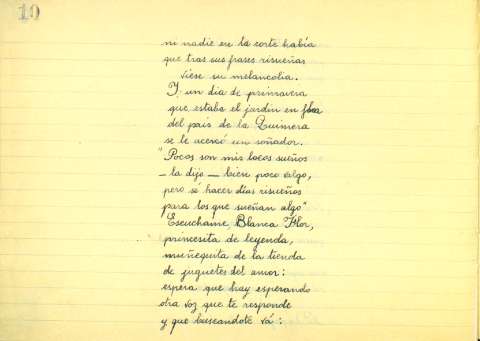 10
ni nadie en la corte había
que tras sus frases risueñas
viese su melancolia.
Y un dia de primavera
que estaba el jardin en flor
del pais de la Quimera
se le acercó un soñador.
"Pocos son mis locos sueños
- la dijo - bien poco valgo,
pero sé hacer días risueños
para los que sueñan algo"
Escuchame, Blanca Flor,
princesita de leyenda,
muñequita de la tienda
de juguetes del amor:
espera que hay esperando
otra voz que te responde
y que buscandote vá: